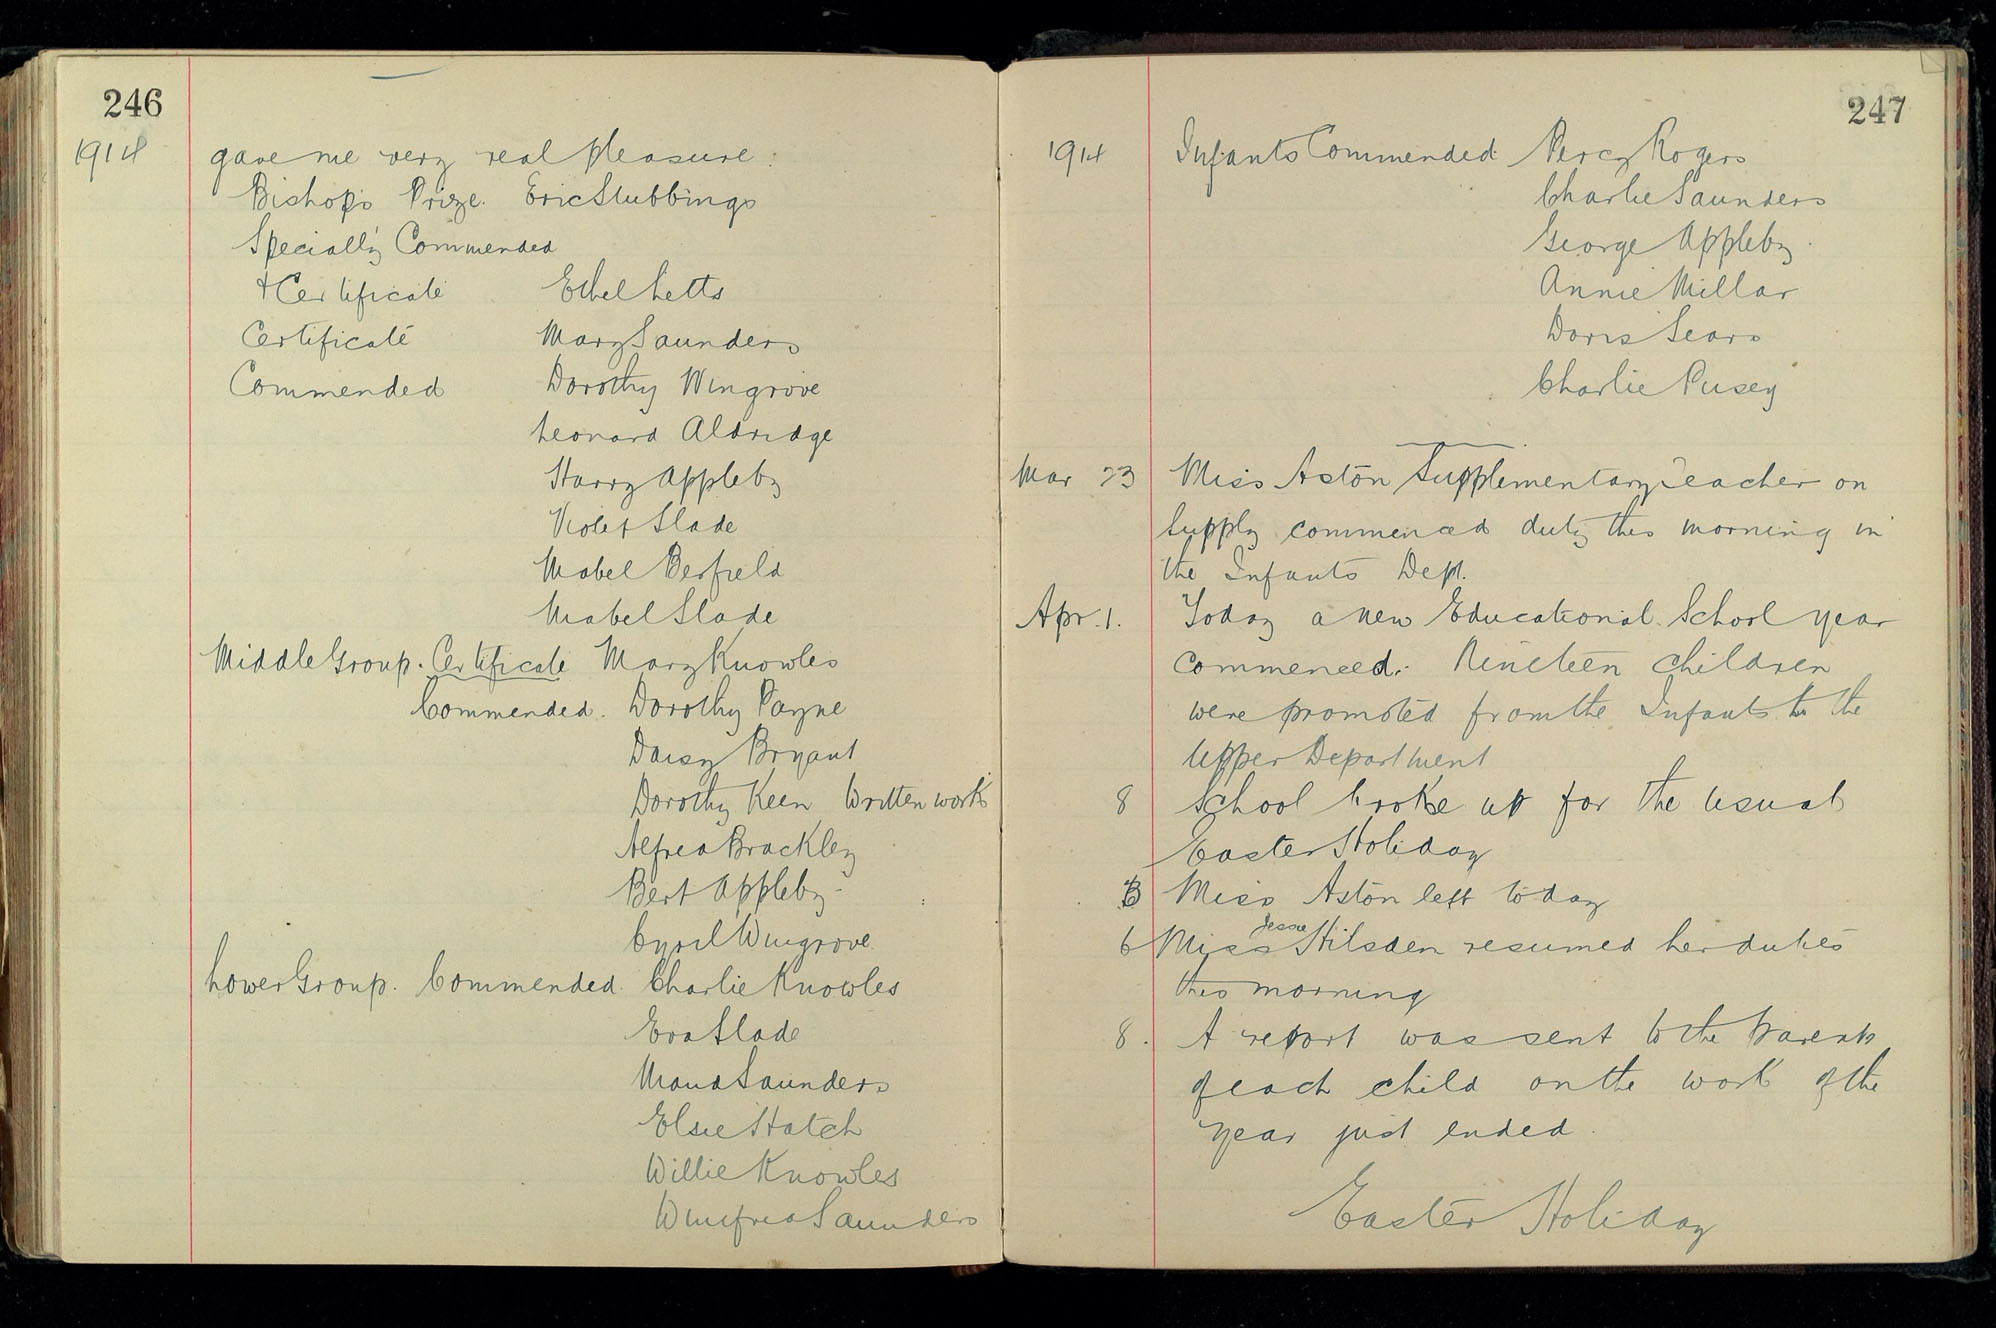 246
1914 gave me very real pleasure:
Bishop's Prize. Eric Stubbings
Specially Commended
+ Certificate Ethel Letts
Certificate Mary Saunders
Commended Dorothy Wingrove
Leonard Aldridge
Harry Appleby
Violet Slade
Mabel Berfield
Mabel Slade
Middle Group. Certificate Mary Knowles
Commended. Dorothy Payne
Daisy Bryant
Dorothy Keen Written work
Alfred Brackley
Bert Appleby
Cyril Wingrove
Lower Group. Commended Charlie Knowles
Eva Slade
Maud Saunders
Elsie Hatch
Willie Knowles
Winifred Saunders
247
1914 Infants Commended Percy Rogers
Charlie Saunders
George Appleby.
Annie Millar
Doris Sears
Charlie Pusey
Mar 23 Miss Aston Supplementary Teacher on
Supply commenced duty this morning in
the Infants Dept.
Apr. 1. Today a new Educational School year
commenced. Nineteen children
were promoted from the Infants to the
Upper Department
8 School broke up for the usual
Easter Holiday
3 Miss Aston left today
6 Miss Jessie Hilsden resumed her duties
this morning
8. A report was sent to the Parents
of each child on the work of the
year just ended.
Easter Holiday